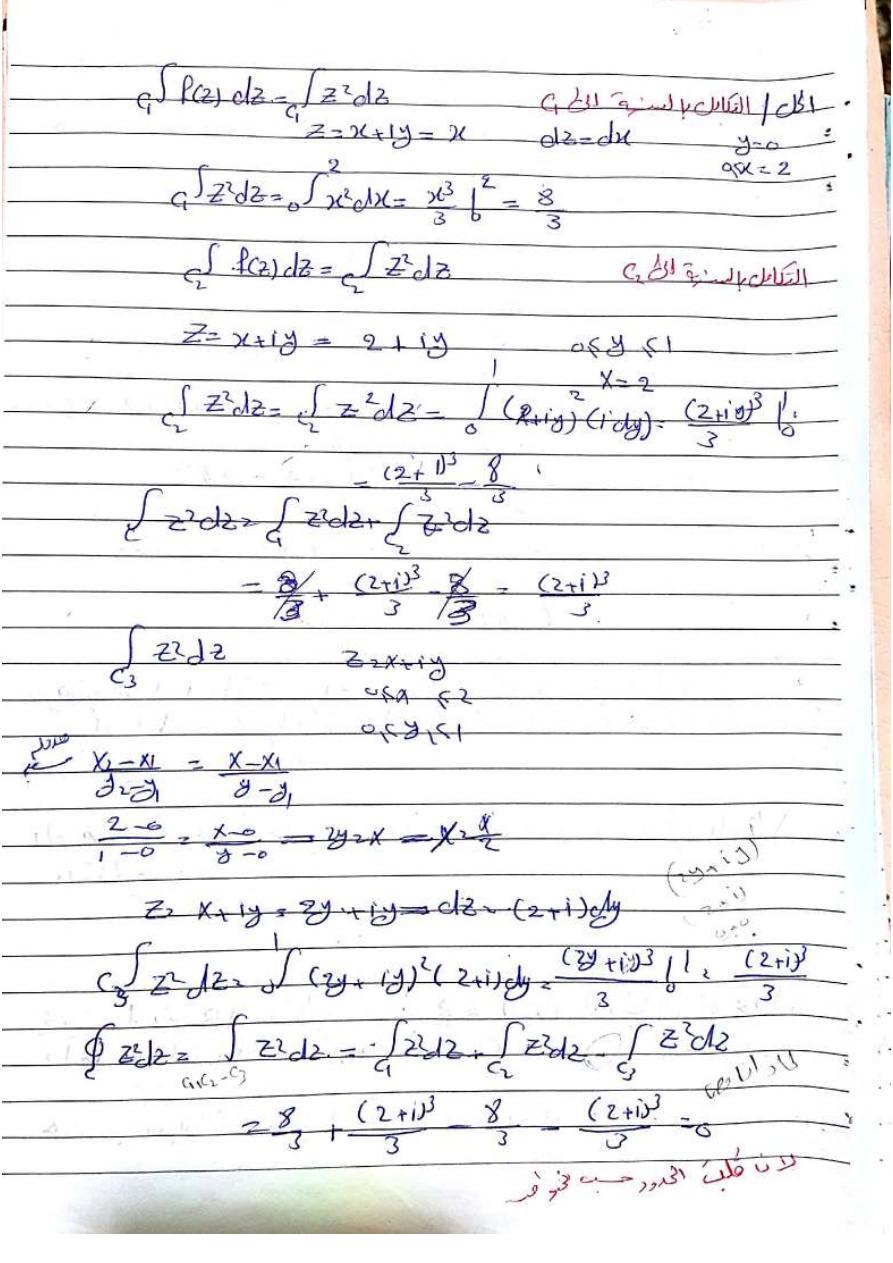 الحل / التكامل بالنسبة الى C₁
C₁∫ f(z) dz = C₁∫ z² dz
z = x + iy = x    dz = dx    y=0
0≤x≤2
C₁∫ z² dz = ₀∫² x² dx = x³/3 |₀² = 8/3
C₂∫ f(z) dz = C₂∫ z² dz    التكامل بالنسبة الى C₂
z = x + iy = 2 + iy    0≤y≤1
x=2
C₂∫ z² dz = C₂∫ z² dz = ₀∫¹ (2+iy)² (i dy) = (2+iy)³/3 |₀¹
= (2+i)³/3 - 8/3
C∫ z² dz = C₁∫ z² dz + C₂∫ z² dz
= 8/3 + (2+i)³/3 - 8/3 = (2+i)³/3
C₃∫ z² dz    z = x+iy
0≤x≤2
0≤y≤1
(x₂-x₁)/(y₂-y₁) = (x-x₁)/(y-y₁)
(2-0)/(1-0) = (x-0)/(y-0) = 2y=x = y=x/2
(2y+iy)
z = x+iy = 2y+iy = dz = (2+i)dy
C₃∫ z² dz = ₀∫¹ (2y+iy)² (2+i)dy = (2y+iy)³/3 |₀¹ = (2+i)³/3
∮C z² dz = ∫C₁C₂-C₃ z² dz = C₁∫ z² dz + C₂∫ z² dz - C₃∫ z² dz
= 8/3 + (2+i)³/3 - 8/3 - (2+i)³/3 = 0
لان قلبت الحدود حسب